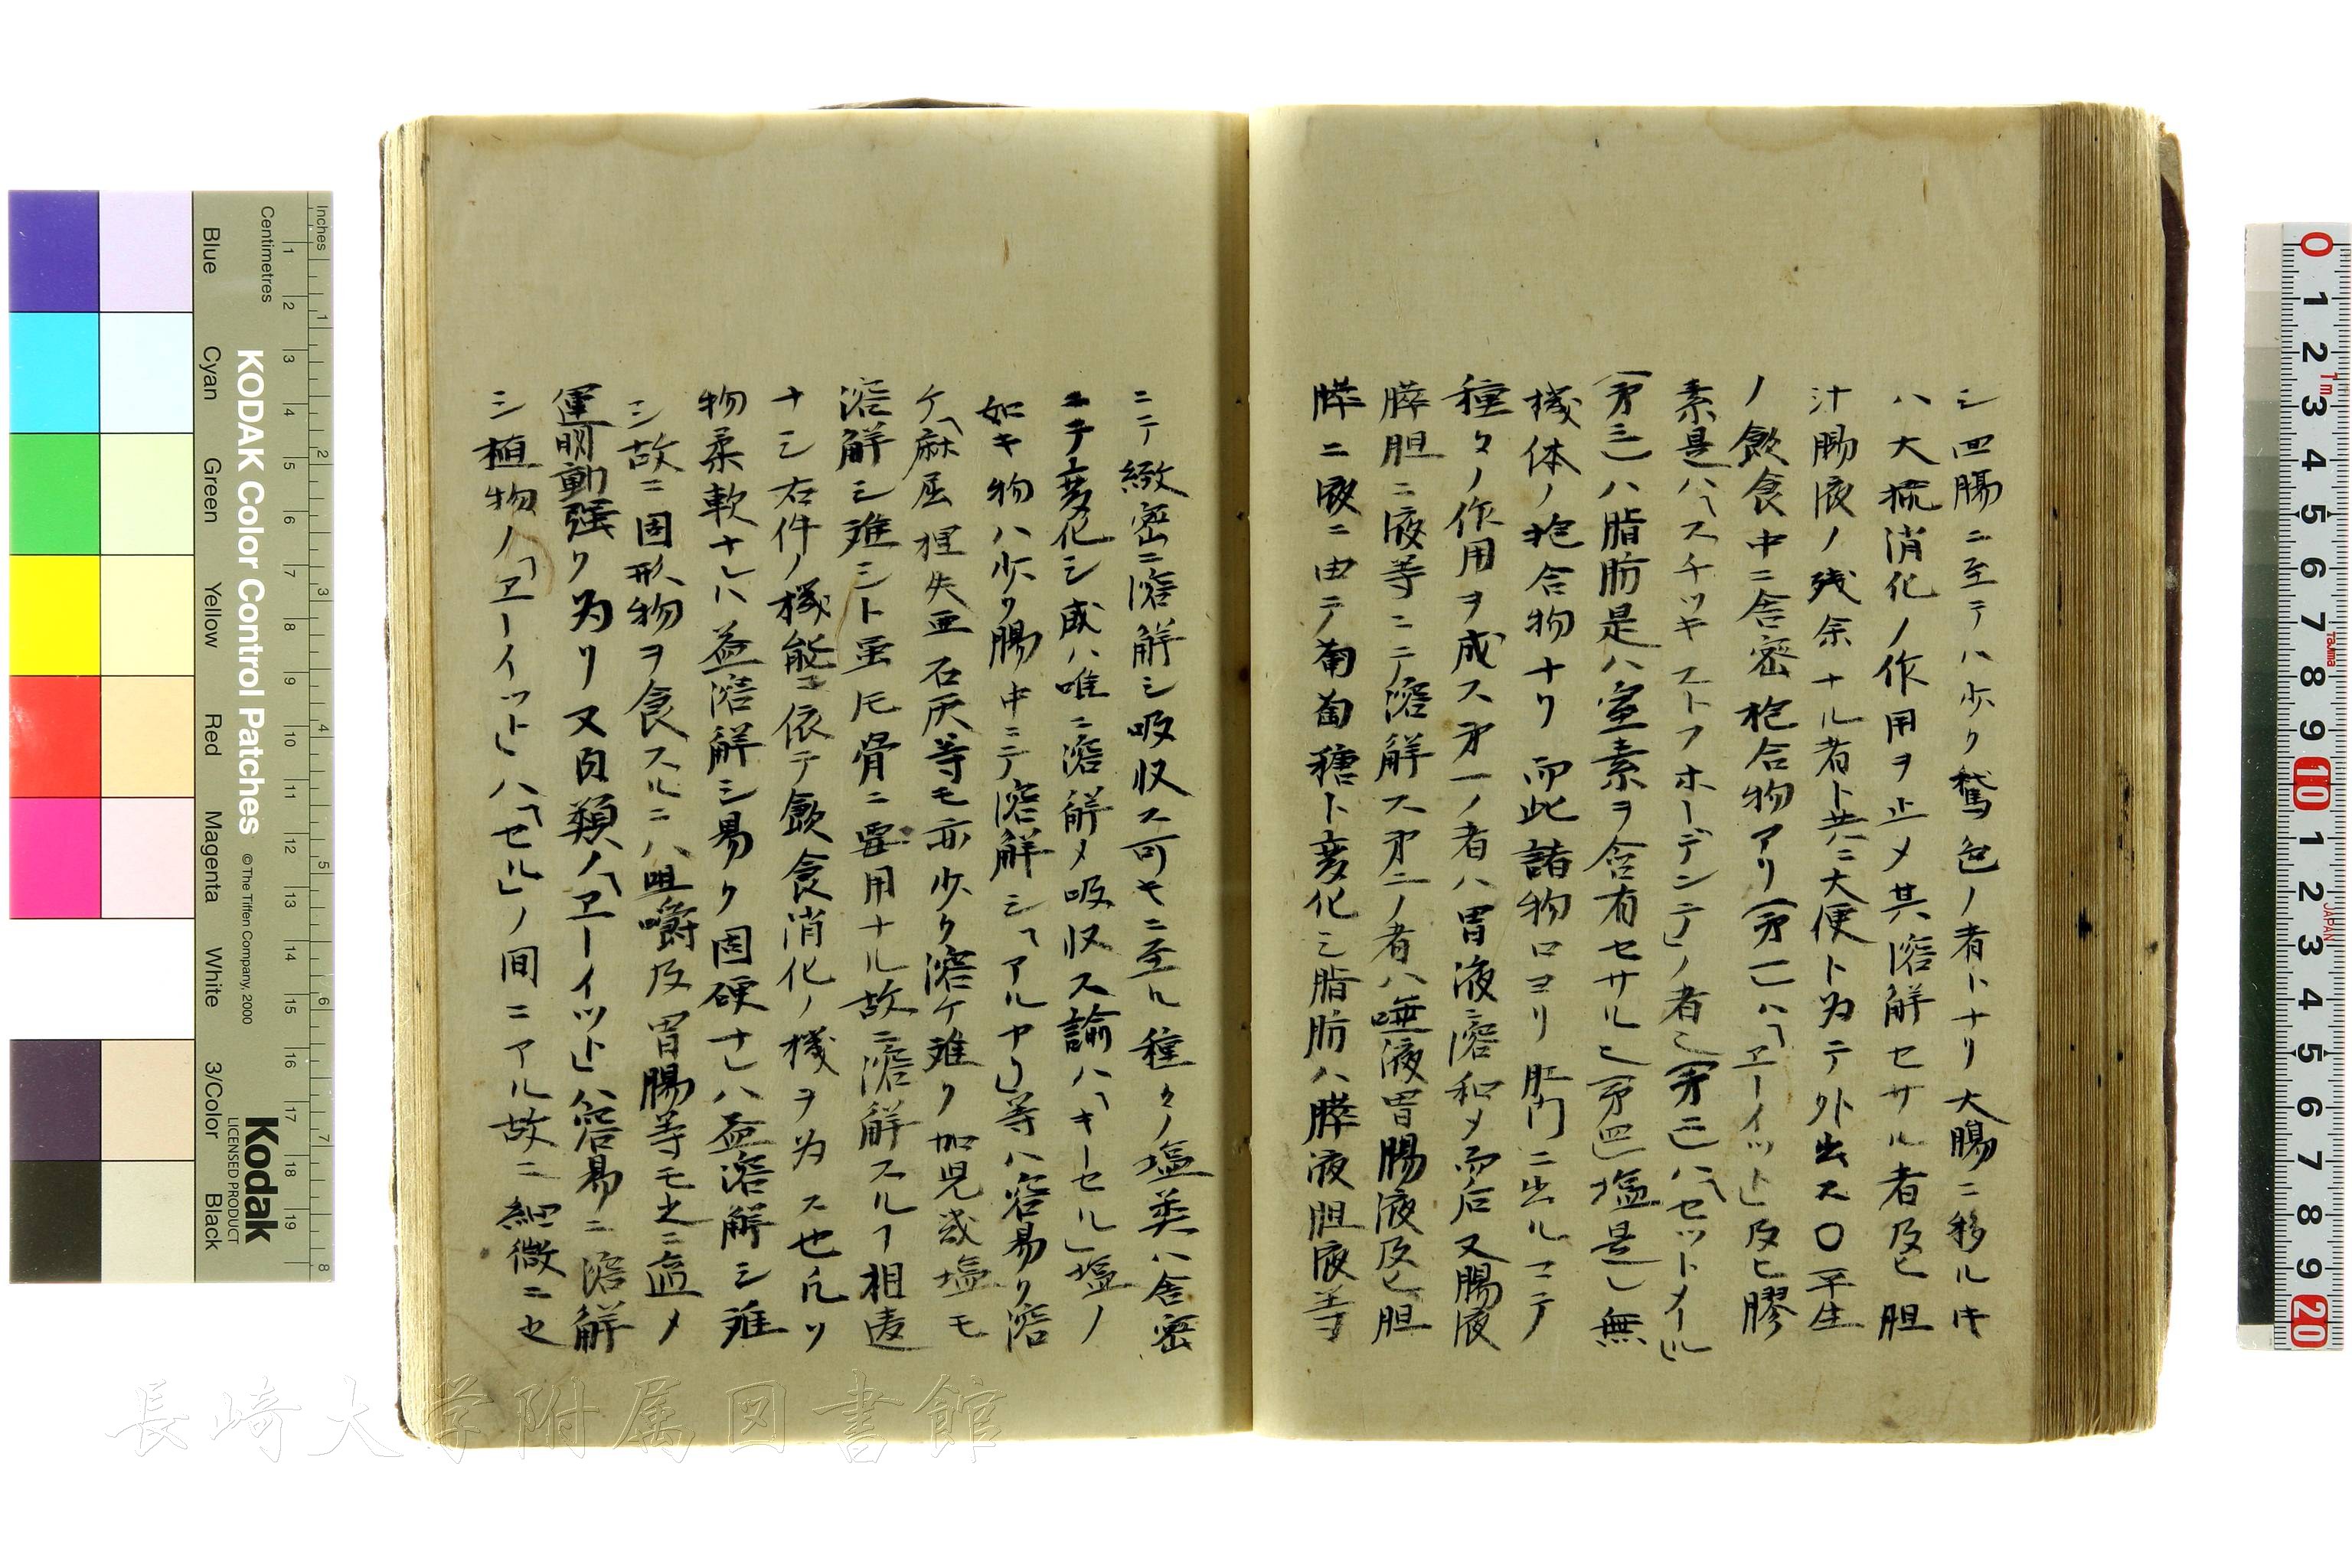 シ回腸ニ至テハ少ク鶩色ノ者トナリ大腸ニ移ル𬼀
ハ大抵消化ノ作用ヲ止メ其溶解セサル者及ヒ胆
汁腸液ノ残余ナル者ト共ニ大便ト为テ外出ス〇平生
ノ飲食中ニ舎密抱合物アリ(第一)ハ「エーイット」及ヒ膠
素是ハ「スチッキストフホーデンデ」ノ者也(第二)ハ「セットメイル」
(第三)ハ脂肪是ハ窒素ヲ含有セサル也(第四)塩是レ無
機体ノ抱合物ナリ而此諸物口ヨリ肛門ニ出ルマテ
種々ノ作用ヲ成ス第一ノ者ハ胃液ニ溶和メ而后又腸液
膵胆ニ液等ニテ溶解ス第二ノ者ハ唾液胃腸液及ヒ胆
膵ニ液ニ由テ葡萄糖ト変化シ脂肪ハ膵液胆液等
ニテ緻密ニ溶解シ吸収ス可キニ至ル種々ノ塩類ハ舎密
ニテ変化シ或ハ唯ニ溶解メ吸収ス諭ハ「キーセル」塩ノ
如キ物ハ少ク腸中ニテ溶解シ「アルヤリ」等ハ容易ク溶
ケ「麻屈涅失亜石灰等モ亦少ク溶ケ難ク加児幾塩モ
溶解シ難シト虽𪜈骨ニ要用ナル故ニ溶解スルヿ相違
ナシ右件ノ機能ニ依テ飲食消化ノ機ヲ为ス也凡ソ
物柔軟ナレハ益溶解シ易ク固硬ナレハ益溶解シ難
シ故ニ固形物ヲ食スルニハ咀嚼及胃腸等モ之ニ適メ
運動強ク为リ又肉類ノ「エーイット」ハ容易ニ溶解
シ植物ノ「エーイット」ハ「セル」ノ间ニアル故ニ細微ニセ
Inches
Centimetres
KODAK Color Control Patches
© The Tiffen Company, 2000
Kodak
LICENSED PRODUCT
Blue
Cyan
Green
Yellow
Red
Magenta
White
3/Color
Black
長崎大学附属図書館